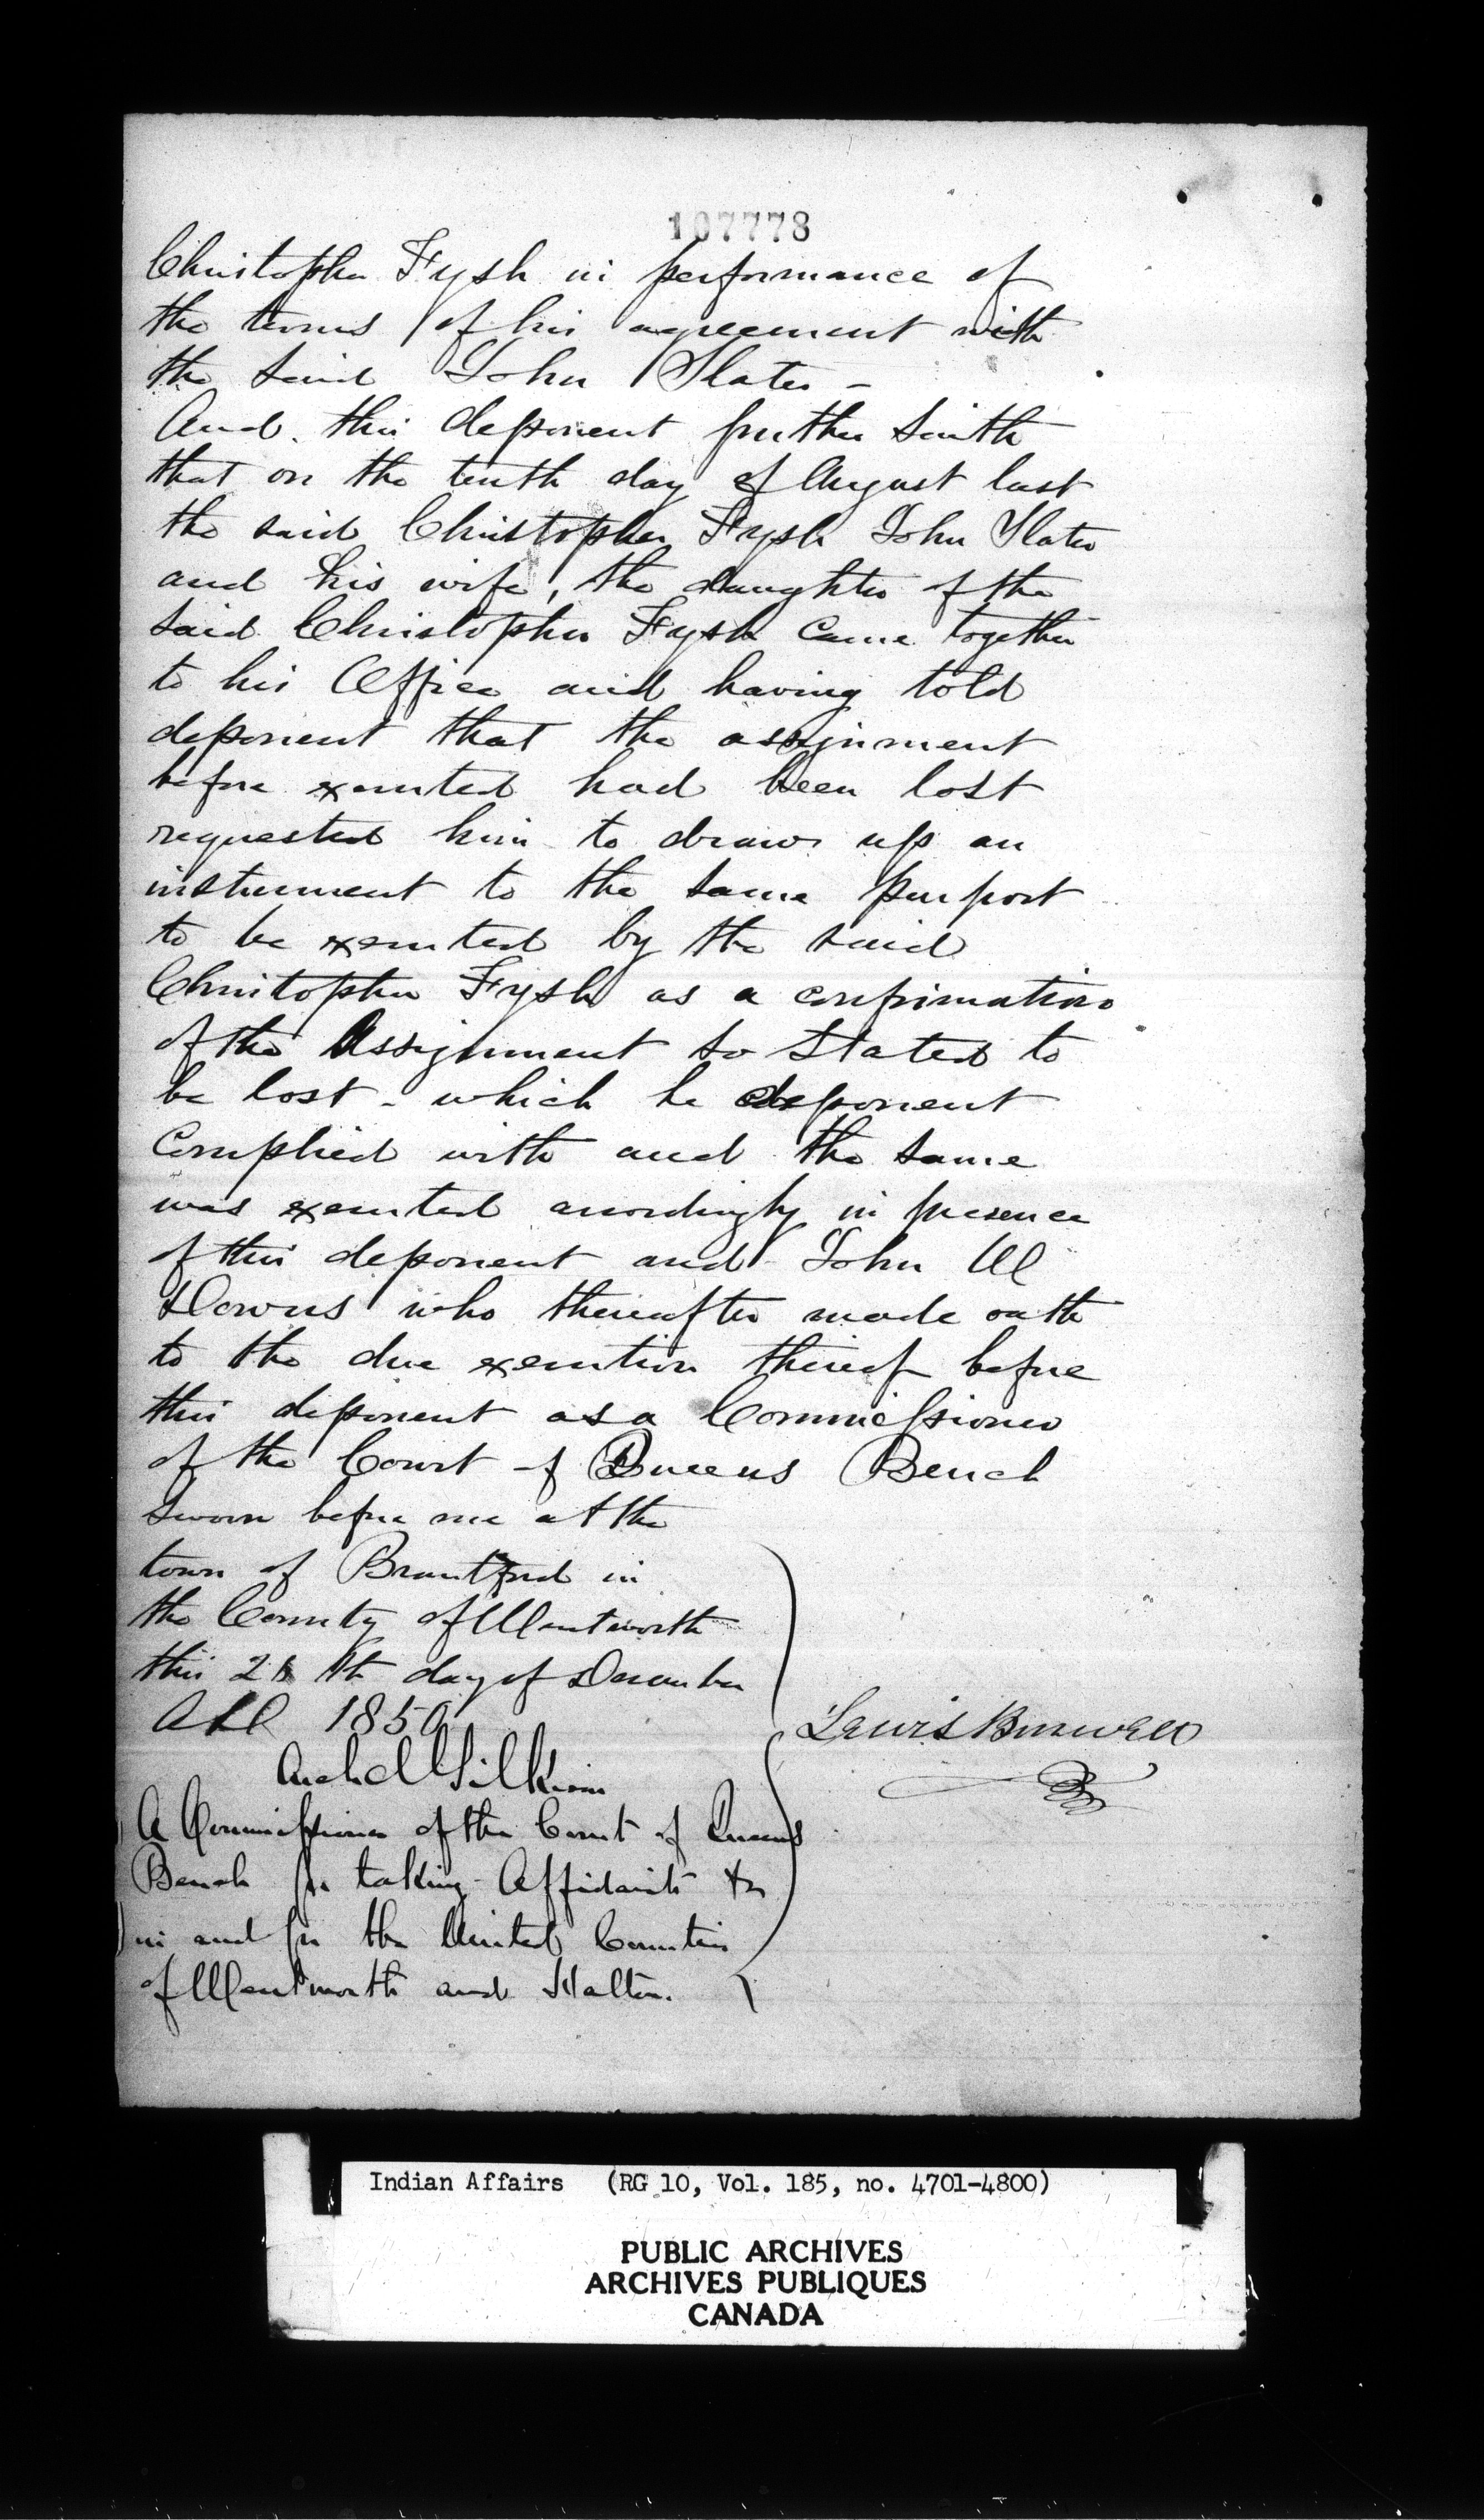 107778
Christopher Fysh in performance of
the terms of his agreement with
the said John Slater -
And this deponent further Saith
that on the tenth day of August last
the said Christopher Fysh John Slater
and his wife, the daughter of the
said Christopher Fysh Came together
to his Office and having told
deponent that the assignment
before executed had been lost
requested him to draw up an
instrument to the same purport
to be executed by the said
Christopher Fysh as a confirmation
of the Assignment so Stated to
be lost - which he deponent
Complied with and the same
was executed accordingly in presence
of this deponent and John W
Downs who thereafter made oath
to the due execution thereof before
this deponent as a Commissioner
of the Court of Queens Bench
Sworn before me at the
town of Brantford in
the County of Wentworth
this th day of December
AD 1850
Lewis Burwell
Archd Gilkison
A Commissioner of the Court of Queens
Bench for taking Affidavits &c
in and for the United Counties
of Wentworth and Halton.
Indian Affairs (RG 10, Vol. 185, no. 4701-4800)
PUBLIC ARCHIVES
ARCHIVES PUBLIQUES
CANADA